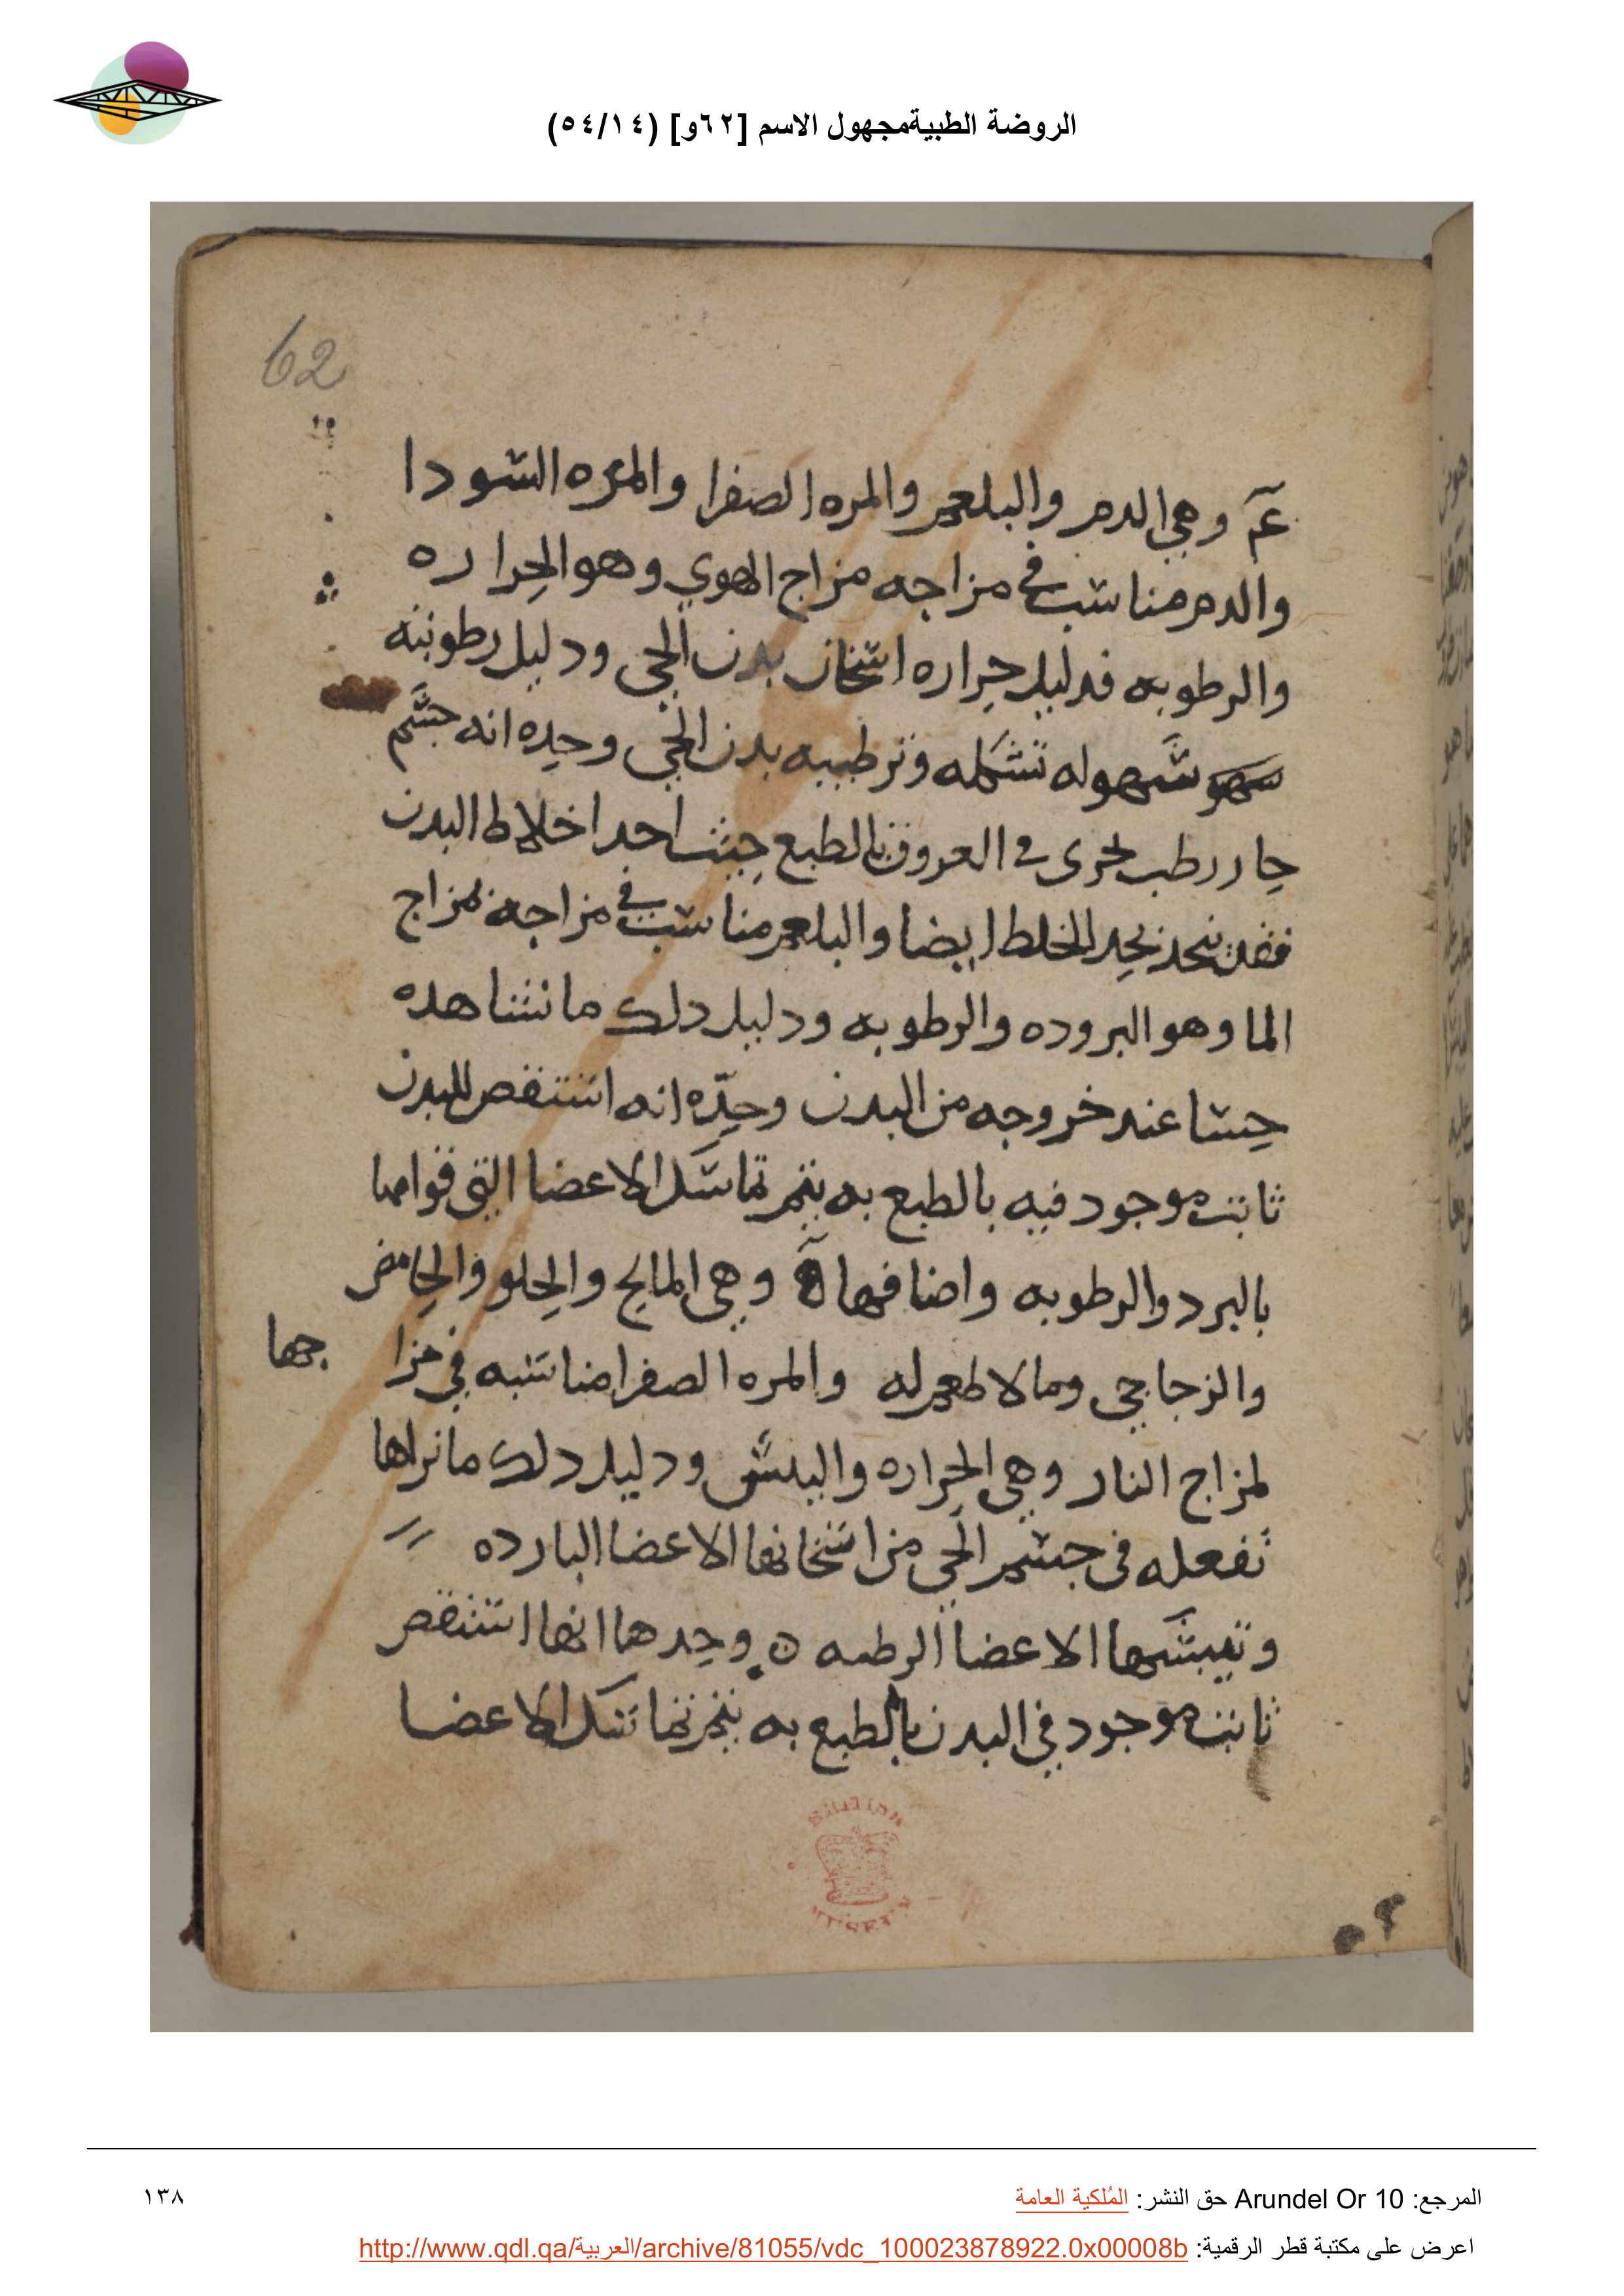 الروضة الطبيةمجهول الاسم [٦٢و] (٥٤/١٤)
62
وهي الدم والبلغم والمره الصفرا والمره السودا
والدم مناسب في مزاجه مزاج الهوي وهو الحراره
والرطوبه فدليل حراره اسخان بدن الحي ودليل رطوبته
سهو سهوله تشكله وترطيبه بدن الحي وحده انه جسم
حار رطب يجرى في العروق بالطبع حيث احد اخلاط البدن
بحد الخلط ايضا والبلغم مناسب في مزاجه لمزاج
الما وهو البروده والرطوبه ودليل دلك ما نشاهده
حسا عند خروجه من البدن وحده انه استنقص للبدن
ثابت موجود فيه بالطبع به يتم تماسك الاعضا التي قوامها
بالبرد والرطوبه واصنافها وهي المالح والحلو والحامض
والزجاجي وما لا طعم له والمره الصفرا مناسبه في مزا جها
لمزاج النار وهي الحراره واليبس ودليل دلك ما نراها
تفعله في جسم الحي من اسخانها الاعضا البارده
وتيبسها الاعضا الرطبه ں وحدها انها استنقص
ثابت موجود في البدن بالطبع به يتم تماسك الاعضا
BRITISH MUSEUM
المرجع: Arundel Or 10 حق النشر: المُلكية العامة
١٣٨
اعرض على مكتبة قطر الرقمية: http://www.qdl.qa/العربية/archive/81055/vdc_100023878922.0x00008b